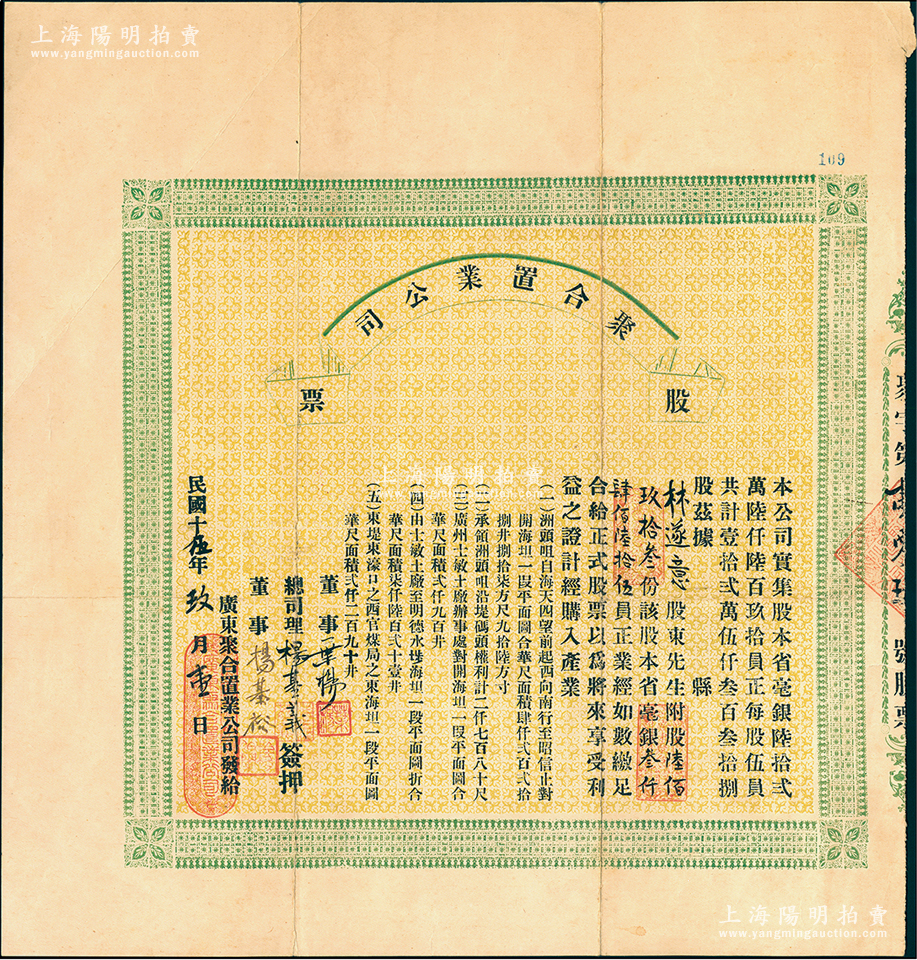 上海陽明拍賣
www.yangmingauction.com
109
聚合置業公司
股票
本公司實集股本省毫銀陸拾弍
萬陸仟陸百玖拾員正每股伍員
共計壹拾弍萬伍仟叁百叁拾捌
股茲據 縣
林遂意股東先生附股陸佰
玖拾叁份該股本省毫銀叁仟
肆佰陸拾伍員正業經如數繳足
合給正式股票以爲將來享受利
益之證計經購入產業
(一)洲頭咀自海天四望前起西向南行至昭信止對
開海坦一段平面圖合華尺面積肆仟弍百弍拾
捌井捌拾柒方尺九拾陸方寸
(二)承領洲頭咀沿堤碼頭權利計二仟七百八十尺
(三)廣州士敏土廠辦事處對開海坦一段平面圖合
華尺面積弍仟九百井
(四)由士敏土廠至明德水塘海坦一段平面圖折合
華尺面積柒仟陸百弍十壹井
(五)東堤東濠口之西官煤局之東海坦一段平面圖
華尺面積弍仟二百九十井
董事
總司理楊基 簽押
董事楊基松
廣東聚合置業公司發給
民國十伍年玖月 日
號股票
上海陽明拍賣
www.yangmingauction.com
上海陽明拍賣
www.yangmingauction.com